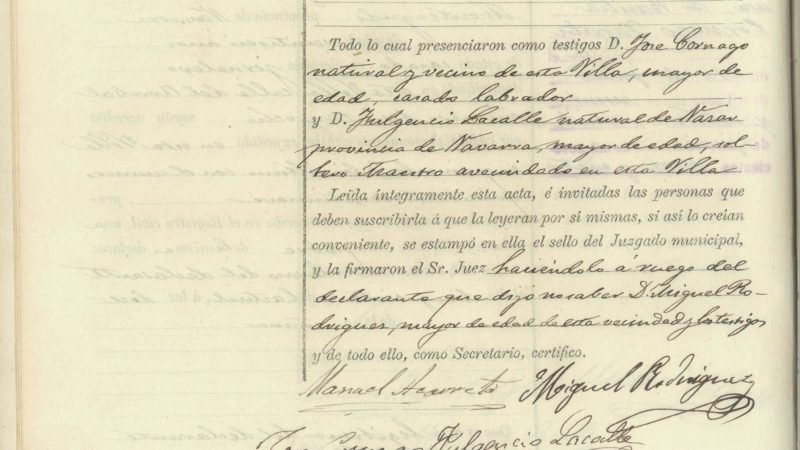 Todo lo cual presenciaron como testigos D. Jose Cornago
natural y vecino de esta Villa, mayor de
edad, casado labrador
y D. Fulgencio Lacalle natural de Nazar
provincia de Navarra, mayor de edad, sol-
tero Maestro avecindado en esta Villa
Leida íntegramente esta acta, é invitadas las personas que
deben suscribirla á que la leyeran por sí mismas, si así lo creían
conveniente, se estampó en ella el sello del Juzgado municipal,
y la firmaron el Sr. Juez haciéndolo á ruego del
declarante que dijo no saber D. Miguel Ro-
driguez, mayor de edad de esta vecindad y los testigos
y de todo ello, como Secretario, certifico.
Manuel Miguel Rodriguez
Jose Cornago Fulgencio Lacalle